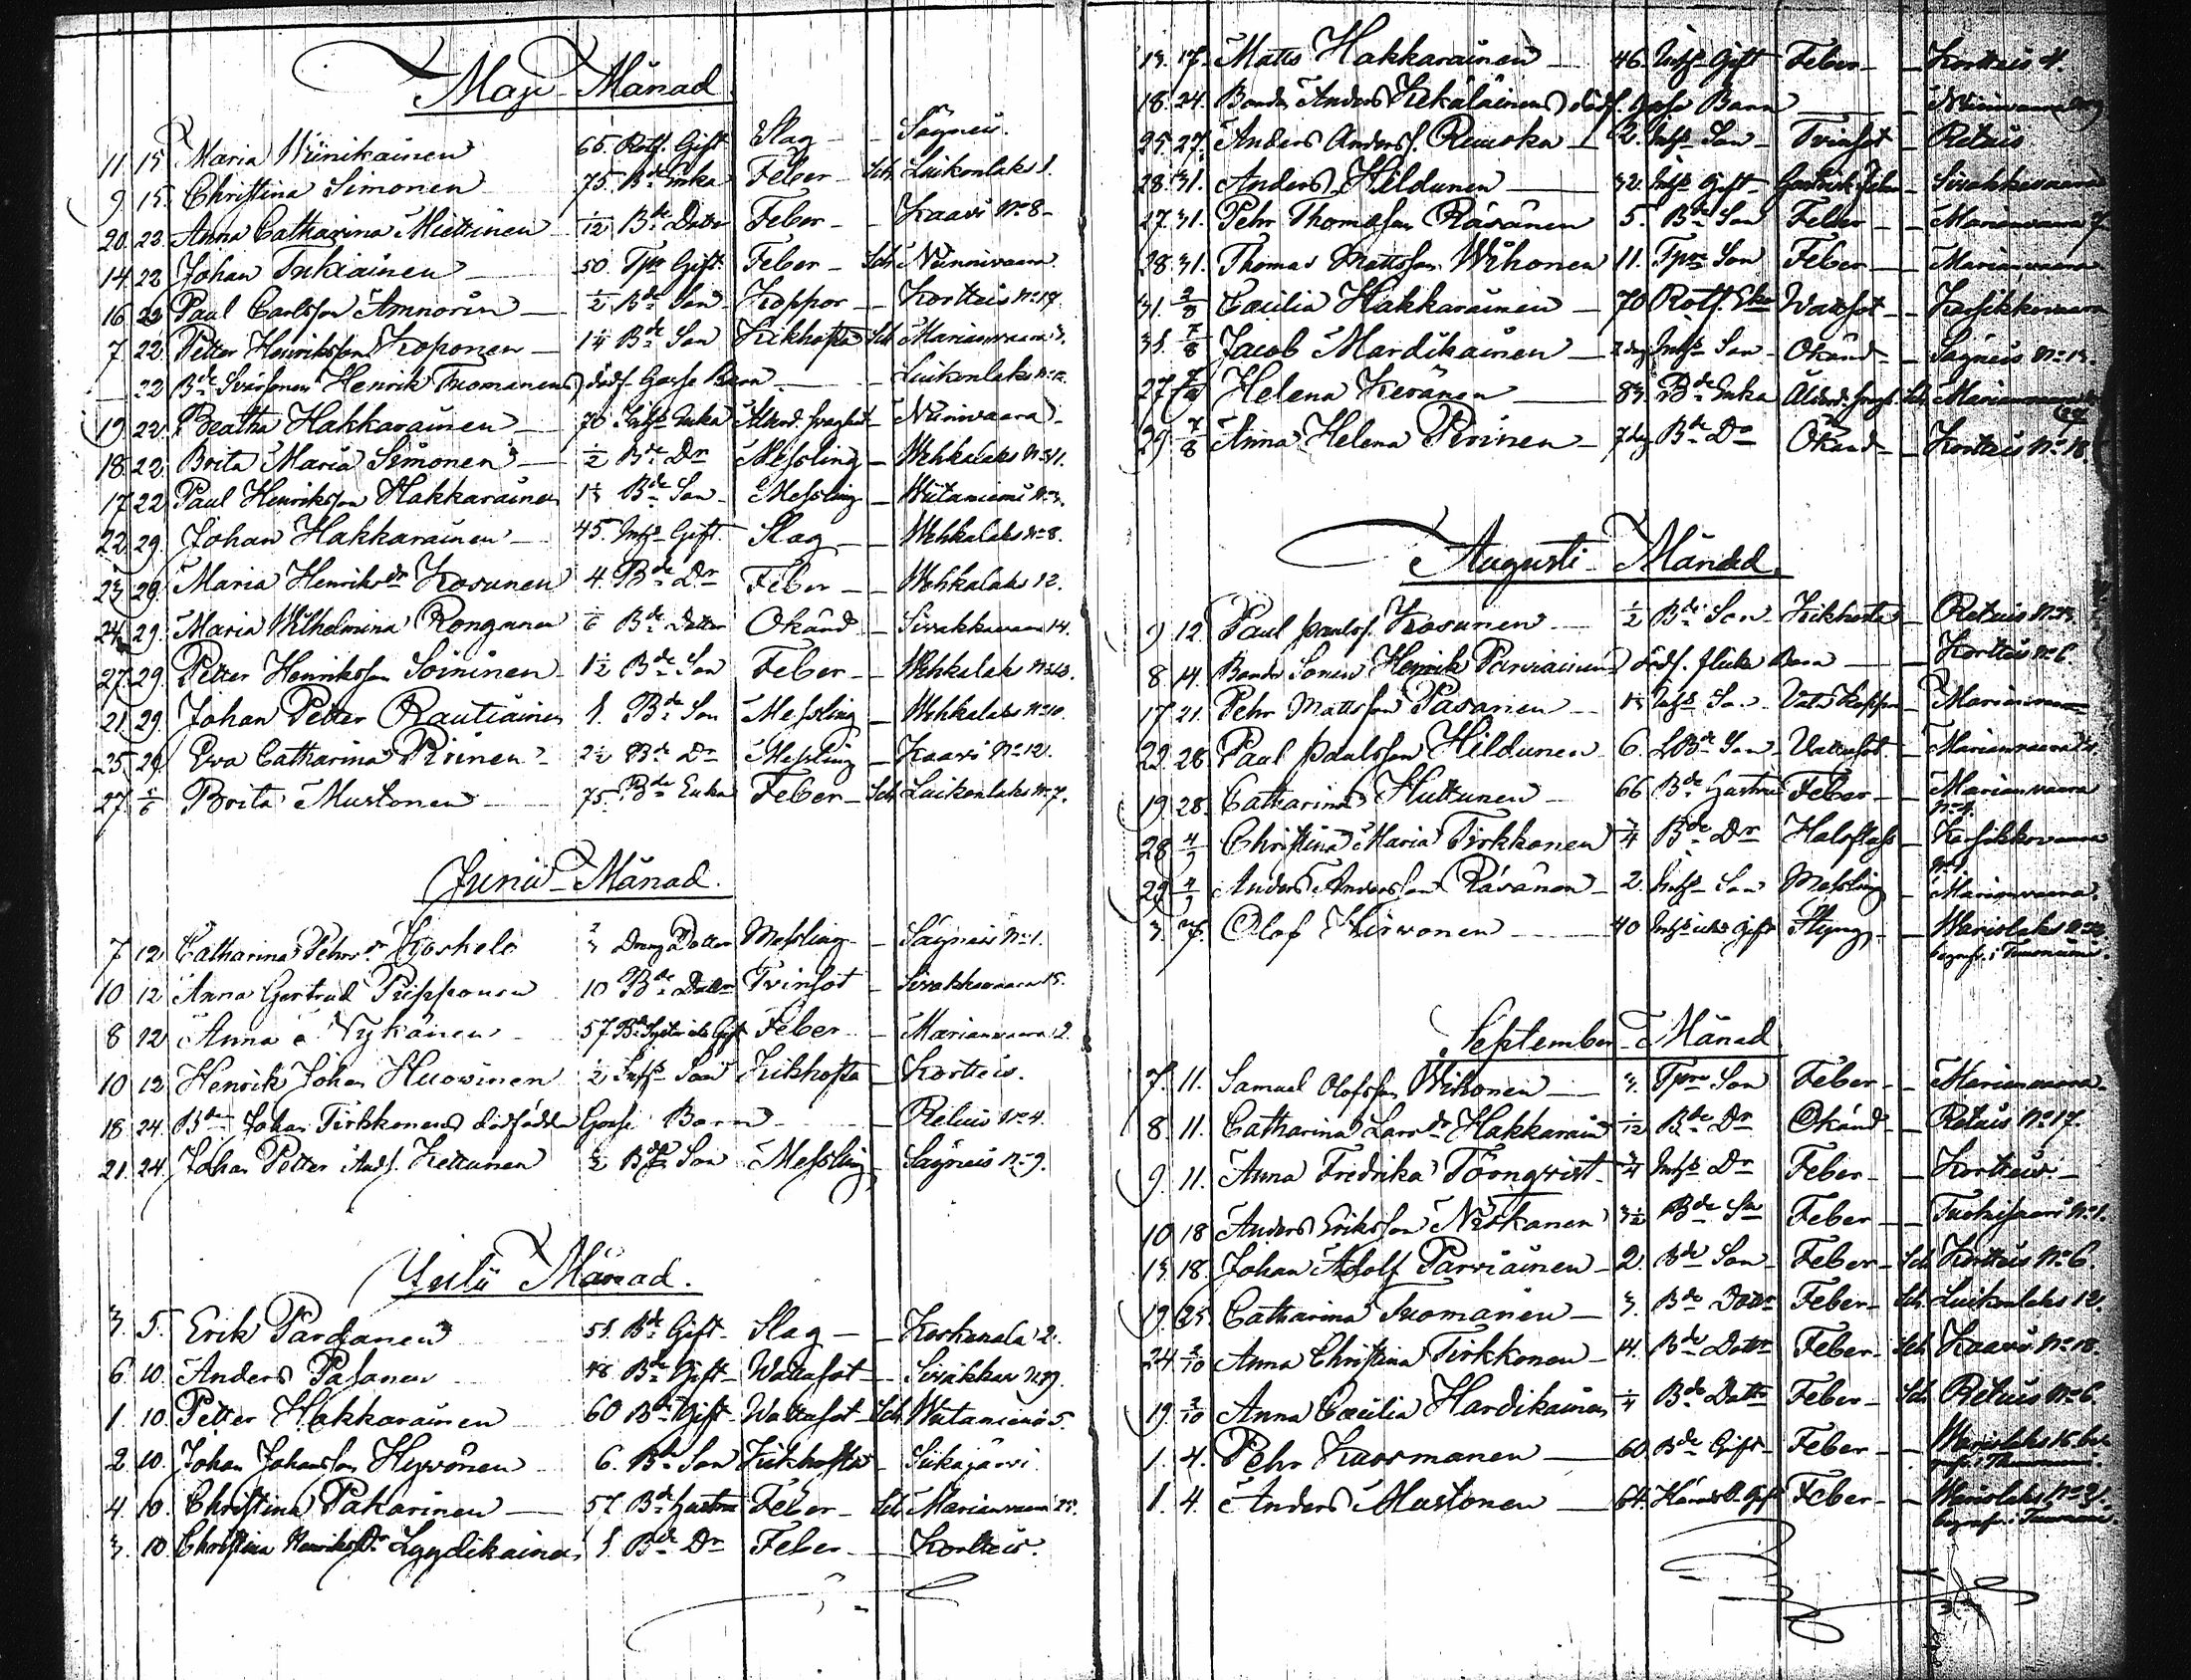 Maji Månad
11 15 Maria Wänikainen 65. Rotf. Gift Slag Sägneis.
9 15. Christina Simonen 75. Bde Enka Feber Sch. Luikonlaks 1.
20. 22 Anna Catharina Miettinen 1/12 Bde Dotter Feber Kaavi No 8
14. 22 Johan Inkiainen 50. Tpr Gift. Feber Sch. Niinivaara
16 22 Paul Carlsson Amnorin 1/2 Bde Son Koppor Kortteis No 17.
7 22 Petter Henriksson Koponen 1 1/4 Bde Son Kikhosta Sch. Marianvaara
22 Bde Henrik Tuomanens dödf. Gosse Barn Luikonlaks
19 22. Beatha Hakkarainen 70 Inhs Enka Ålderd. Niinivaara
18 22 Brita Maria Simonen 1/2 Bde Dr Messling Wehkalaks No 11.
17 22 Paul Henriksson Hakkarainen Bde Son Messling Wiitaniemi
22 29. Johan Hakkarainen 45. Inhs Gift. Slag Wehkalaks No 8.
23 29. Maria Henriksdr Kosunen 4. Bde Dr Feber Wehkalaks 12.
24 29. Maria Wilhelmina Ronganen 1/6 Bde Dotter Okänd Sivakkavaara 14.
27. 29. Petter Henriksson Soininen 1 1/2 Bde Son Feber Wehkalak
21 29. Johan Petter Rautiainen 1. Bde Son Messling Wehkalaks No 10.
25 29 Eva Catharina Pirinen 2 1/2 Bde Dr Messling Kaavi No 12.
27. 1/6 Brita Mustonen 75. Bde Enka Feber Sch Luikonlaks No 7.
Junii Månad.
7 12 Catharina Pehrsdr Koskelo Dreng Dotter Messling Sägneis No 1.
10 12 Anna Gertrud Pripponen 10 Bde Dotter Tvinsot Sivakkavaara 15.
8 12 Anna Nykänen 57 Bde Syster Gift Feber Marianvaara 2.
10 12 Henrik Johan Huovinen 1/2 Inhs Son Kikhosta Kortteis.
18 24. Bde Johan Tirkkonens dödfödda Gosse Barn Retuis No 4.
21. 24. Johan Petter Andf. Kettunen 1/2 Bde Son Messling Sägneis No 9.
Julii Månad.
3. 5. Erik Pardanen 51. Bde Gift Slag Koskenala 2.
6. 10. Anders Pasanen 48 Bde Gift Wattusot Sivakkav
1. 10. Petter Hakkarainen 60 Bde Gift Wattusot Sch. Wiitaniemi 5.
2. 10. Johan Johansson Hyvönen 6. Bde Son Kikhosta Siikajärvi
4 10 Christina Pakarinen 57. Bde Hustru Feber Sch. Marianvaara
3. 10 Christina Henriksdr Lyydikainen 1. Bde Dr Feber Kortteis.
13. 17. Matts Hakkarainen 46. Inhs Gift Feber Kortteis 4.
18. 24. Bonden Anders Kekäläinens dödf. Gosse Barn Niinivaara
25. 27. Anders Andersf. Ruuska 2. Inhs Son Tvinsot Retuis
28. 31. Anders Hildunen 32. Inhs Gift Feber Sivakkavaara
27. 31. Pehr Thomasson Räsänen 5. Bde Son Feber Marianvaara 7.
28. 31. Thomas Mattsson Wihonen 11. Tprs Son Feber Marianvaara
31. 2/8 Caecilia Hakkarainen 70 Rotf. Eka Wattsot Karsikkovaara
31. 7/8 Jacob Mardikainen 2 dag Inhs Son Okänd Sägneis No 13.
27 7/8 Helena Keränen 83. Bde Enka Ålderd. Sch. Marianvaara
29. 7/8 Anna Helena Pirinen 7 dg Bde Dr Okänd Kortteis No 18.
Augusti Månad.
9 12 Paul Paulsf. Kosunen 1/2 Bde Son Kikhosta Retuis
8 14. Bonde Sonen Henrik Parviainens dödf. flicke Barn Kortteis No 6.
17 21. Pehr Mattsson Pasanen Inhs Son Vatn Koppor Marianvaara
22. 28 Paul Paulsson Hildunen 6. Bde Son Vattusot Marianvaara
19 28. Catharina Huttunen 66 Bde Hustru Feber Marianvaara No 4.
28 4/9 Christina Maria Tirkkonen 3/4 Bde Dr Halsfluss Karsikkovaara
29. 4/9 Anders Andersson Räsänen 2. Inhs Son Messling Marianvaara.
3. Olof Hirvonen 40 Inhs Gift Styng Warislaks
begraf. i Tuusniemi.
September Månad
7. 11. Samuel Olofsson Wihonen 3. Tprs Son Feber Marianvaara.
8. 11. Catharina Larsdr Hakkarain 1/12 Bde Dr Okänd Retuis No 17.
9. 11. Anna Fredrika Törnqvist 3/4 Inhs Dr Feber Kortteis
10 18 Anders Eriksson Niskanen 3 1/2 Bde Sn Feber Tuohisaari No 1.
13 18. Johan Adolf Parviainen 2. Bde Son Feber Sch. Kortteis No 6.
19. 25. Catharina Tuomanen 3. Bde Dottr Feber Sch. Luikonlaks 12.
24. 2/10 Anna Christina Tirkkonen 14. Bde Dottr Feber Sch Kaavi No 18
19. 2/10 Anna Caecilia Hardikainen 1/4 Bde Dottr Feber Sch Retuis No 6.
1. 4. Pehr Kuosmanen 60. Bde Gift Feber Warislaks
1. 4. Anders Mustonen 64. Gift Feber Warislaks No 21.
begrafv. i Tuusniemi.